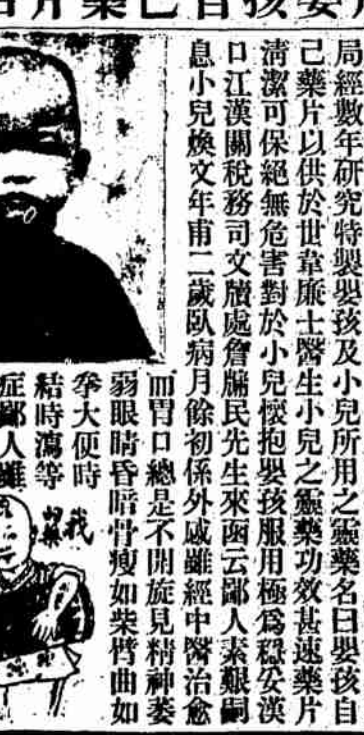 嬰孩自己藥片
局經數年研究特製嬰孩及小兒所用之靈藥名曰嬰孩自
己藥片以供於世韋廉士醫生小兒之靈藥功效甚速藥片
清潔可保絕無危害對於小兒懷抱嬰孩服用極爲穩安漢
口江漢關稅務司文牘處詹牖民先生來函云鄙人素艱嗣
息小兒煥文年甫二歲臥病月餘初係外感雖經中醫治愈
而胃口總是不開旋見精神萎
弱眼睛昏暗骨瘦如柴臂曲如
拳大便時
結時瀉等
症鄙人雖
我
的藥